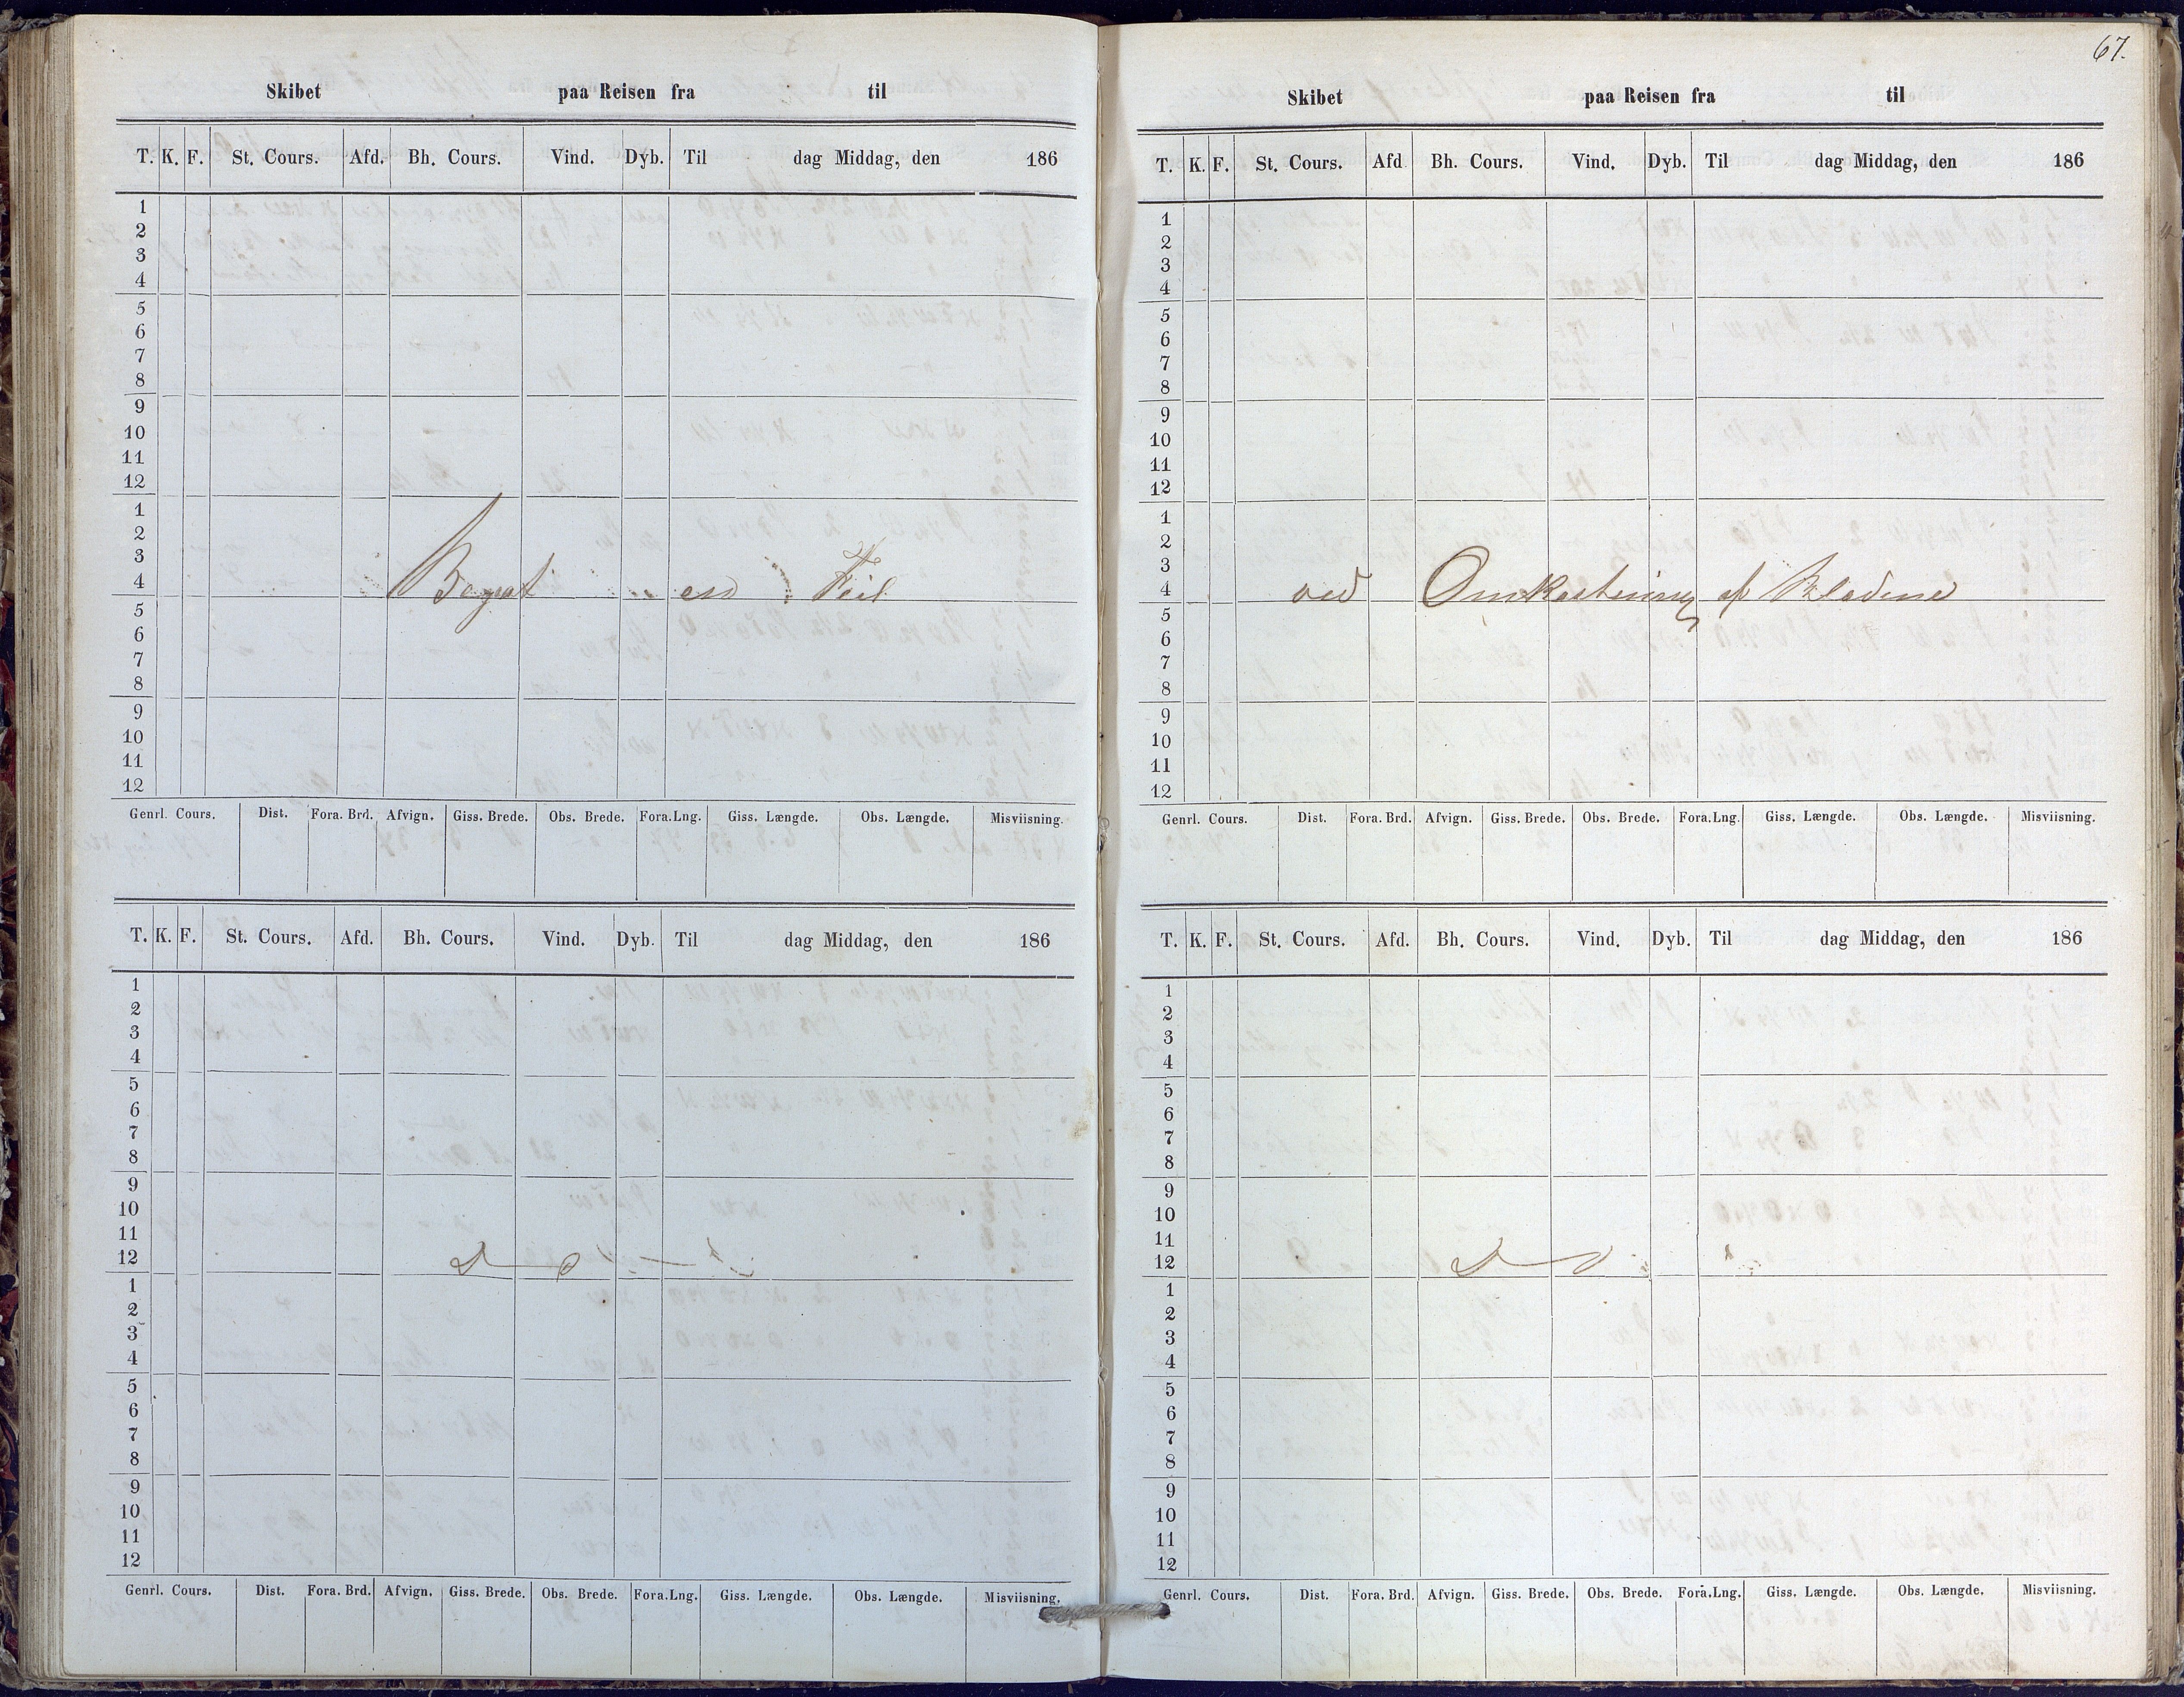 Skibet paa Reisen fra til
T. K. F. St. Cours. Afd. Bh. Cours. Vind. Dyb. Til dag Middag, den 186
1
2
3
4
5
6
7
8
9
10
11
12
1
2
3
4 Begaat en Feil
5
6
7
8
9
10
11
12
Genrl. Cours. Dist. Fora. Brd. Afvign. Giss. Brede. Obs. Brede. Fora.Lng. Giss. Længde. Obs. Længde. Misviisning.
T. K. F. St. Cours. Afd. Bh. Cours. Vind. Dyb. Til dag Middag, den 186
1
2
3
4
5
6
7
8
9
10
11
12 D — o
1
2
3
4
5
6
7
8
9
10
11
12
Genrl. Cours. Dist. Fora. Brd. Afvign. Giss. Brede. Obs. Brede. Fora.Lng. Giss. Længde. Obs. Længde. Misviisning.
67.
Skibet paa Reisen fra til
T. K. F. St. Cours. Afd Bh. Cours. Vind. Dyb. Til dag Middag, den 186
1
2
3
4
5
6
7
8
9
10
11
12
1
2
3
4 ved Omkastning af Bladene
5
6
7
8
9
10
11
12
Genrl. Cours. Dist. Fora. Brd. Afvign. Giss. Brede. Obs. Brede. Fora.Lng. Giss. Længde. Obs. Længde. Misviisning.
T. K. F. St. Cours. Afd. Bh. Cours. Vind. Dyb. Til dag Middag, den 186
1
2
3
4
5
6
7
8
9
10
11
12 D — o
1
2
3
4
5
6
7
8
9
10
11
12
Genrl. Cours. Dist. Fora. Brd. Afvign. Giss. Brede. Obs. Brede. Fora.Lng. Giss. Længde. Obs. Længde. Misviisning.